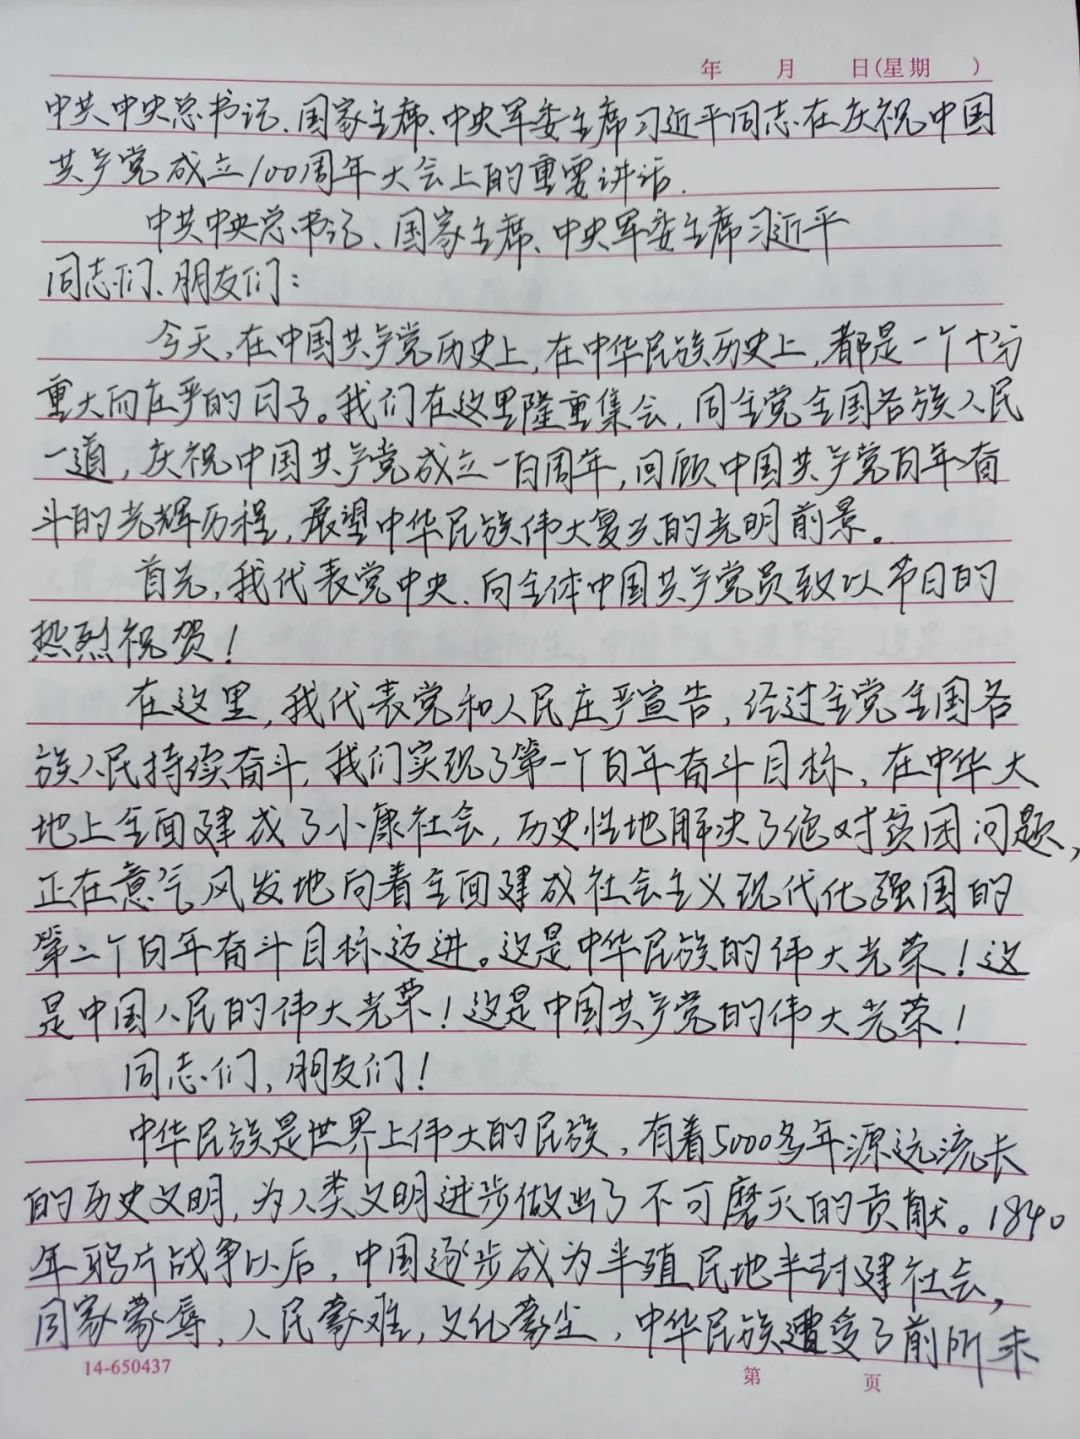 年 月 日(星期 )
中共中央总书记、国家主席、中央军委主席习近平同志在庆祝中国
共产党成立100周年大会上的重要讲话.
中共中央总书记、国家主席、中央军委主席习近平
同志们、朋友们：
今天,在中国共产党历史上,在中华民族历史上,都是一个十分
重大而庄严的日子。我们在这里隆重集会,同全党全国各族人民
一道,庆祝中国共产党成立一百周年,回顾中国共产党百年奋
斗的光辉历程,展望中华民族伟大复兴的光明前景。
首先,我代表党中央、向全体中国共产党员致以节日的
热烈祝贺!
在这里,我代表党和人民庄严宣告,经过全党全国各
族人民持续奋斗,我们实现了第一个百年奋斗目标,在中华大
地上全面建成了小康社会,历史性地解决了绝对贫困问题,
正在意气风发地向着全面建成社会主义现代化强国的
第二个百年奋斗目标迈进。这是中华民族的伟大光荣!这
是中国人民的伟大光荣!这是中国共产党的伟大光荣!
同志们,朋友们!
中华民族是世界上伟大的民族,有着5000多年源远流长
的历史文明,为人类文明进步做出了不可磨灭的贡献。1840
年鸦片战争以后,中国逐步成为半殖民地半封建社会,
国家蒙辱,人民蒙难,文化蒙尘,中华民族遭受了前所未
14-650437 第 页